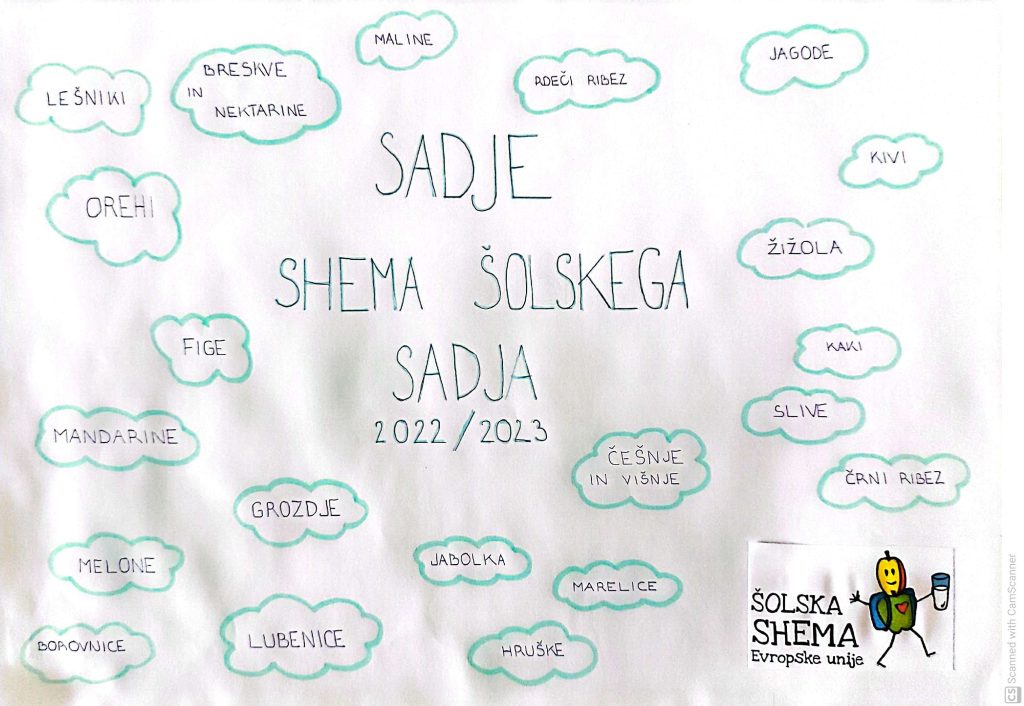 MALINE
JAGODE
BRESKVE
IN
NEKTARINE
RDEČI RIBEZ
LEŠNIKI
SADJE
KIVI
OREHI
ŽIŽOLA
SHEMA ŠOLSKEGA
FIGE
KAKI
SADJA
SLIVE
2022/2023
MANDARINE
ČEŠNJE
IN VIŠNJE
ČRNI RIBEZ
GROZDJE
MELONE
JABOLKA
MARELICE
BOROVNICE
LUBENICE
HRUŠKE
ŠOLSKA
SHEMA
Evropske unije
CS Scanned with CamScanner